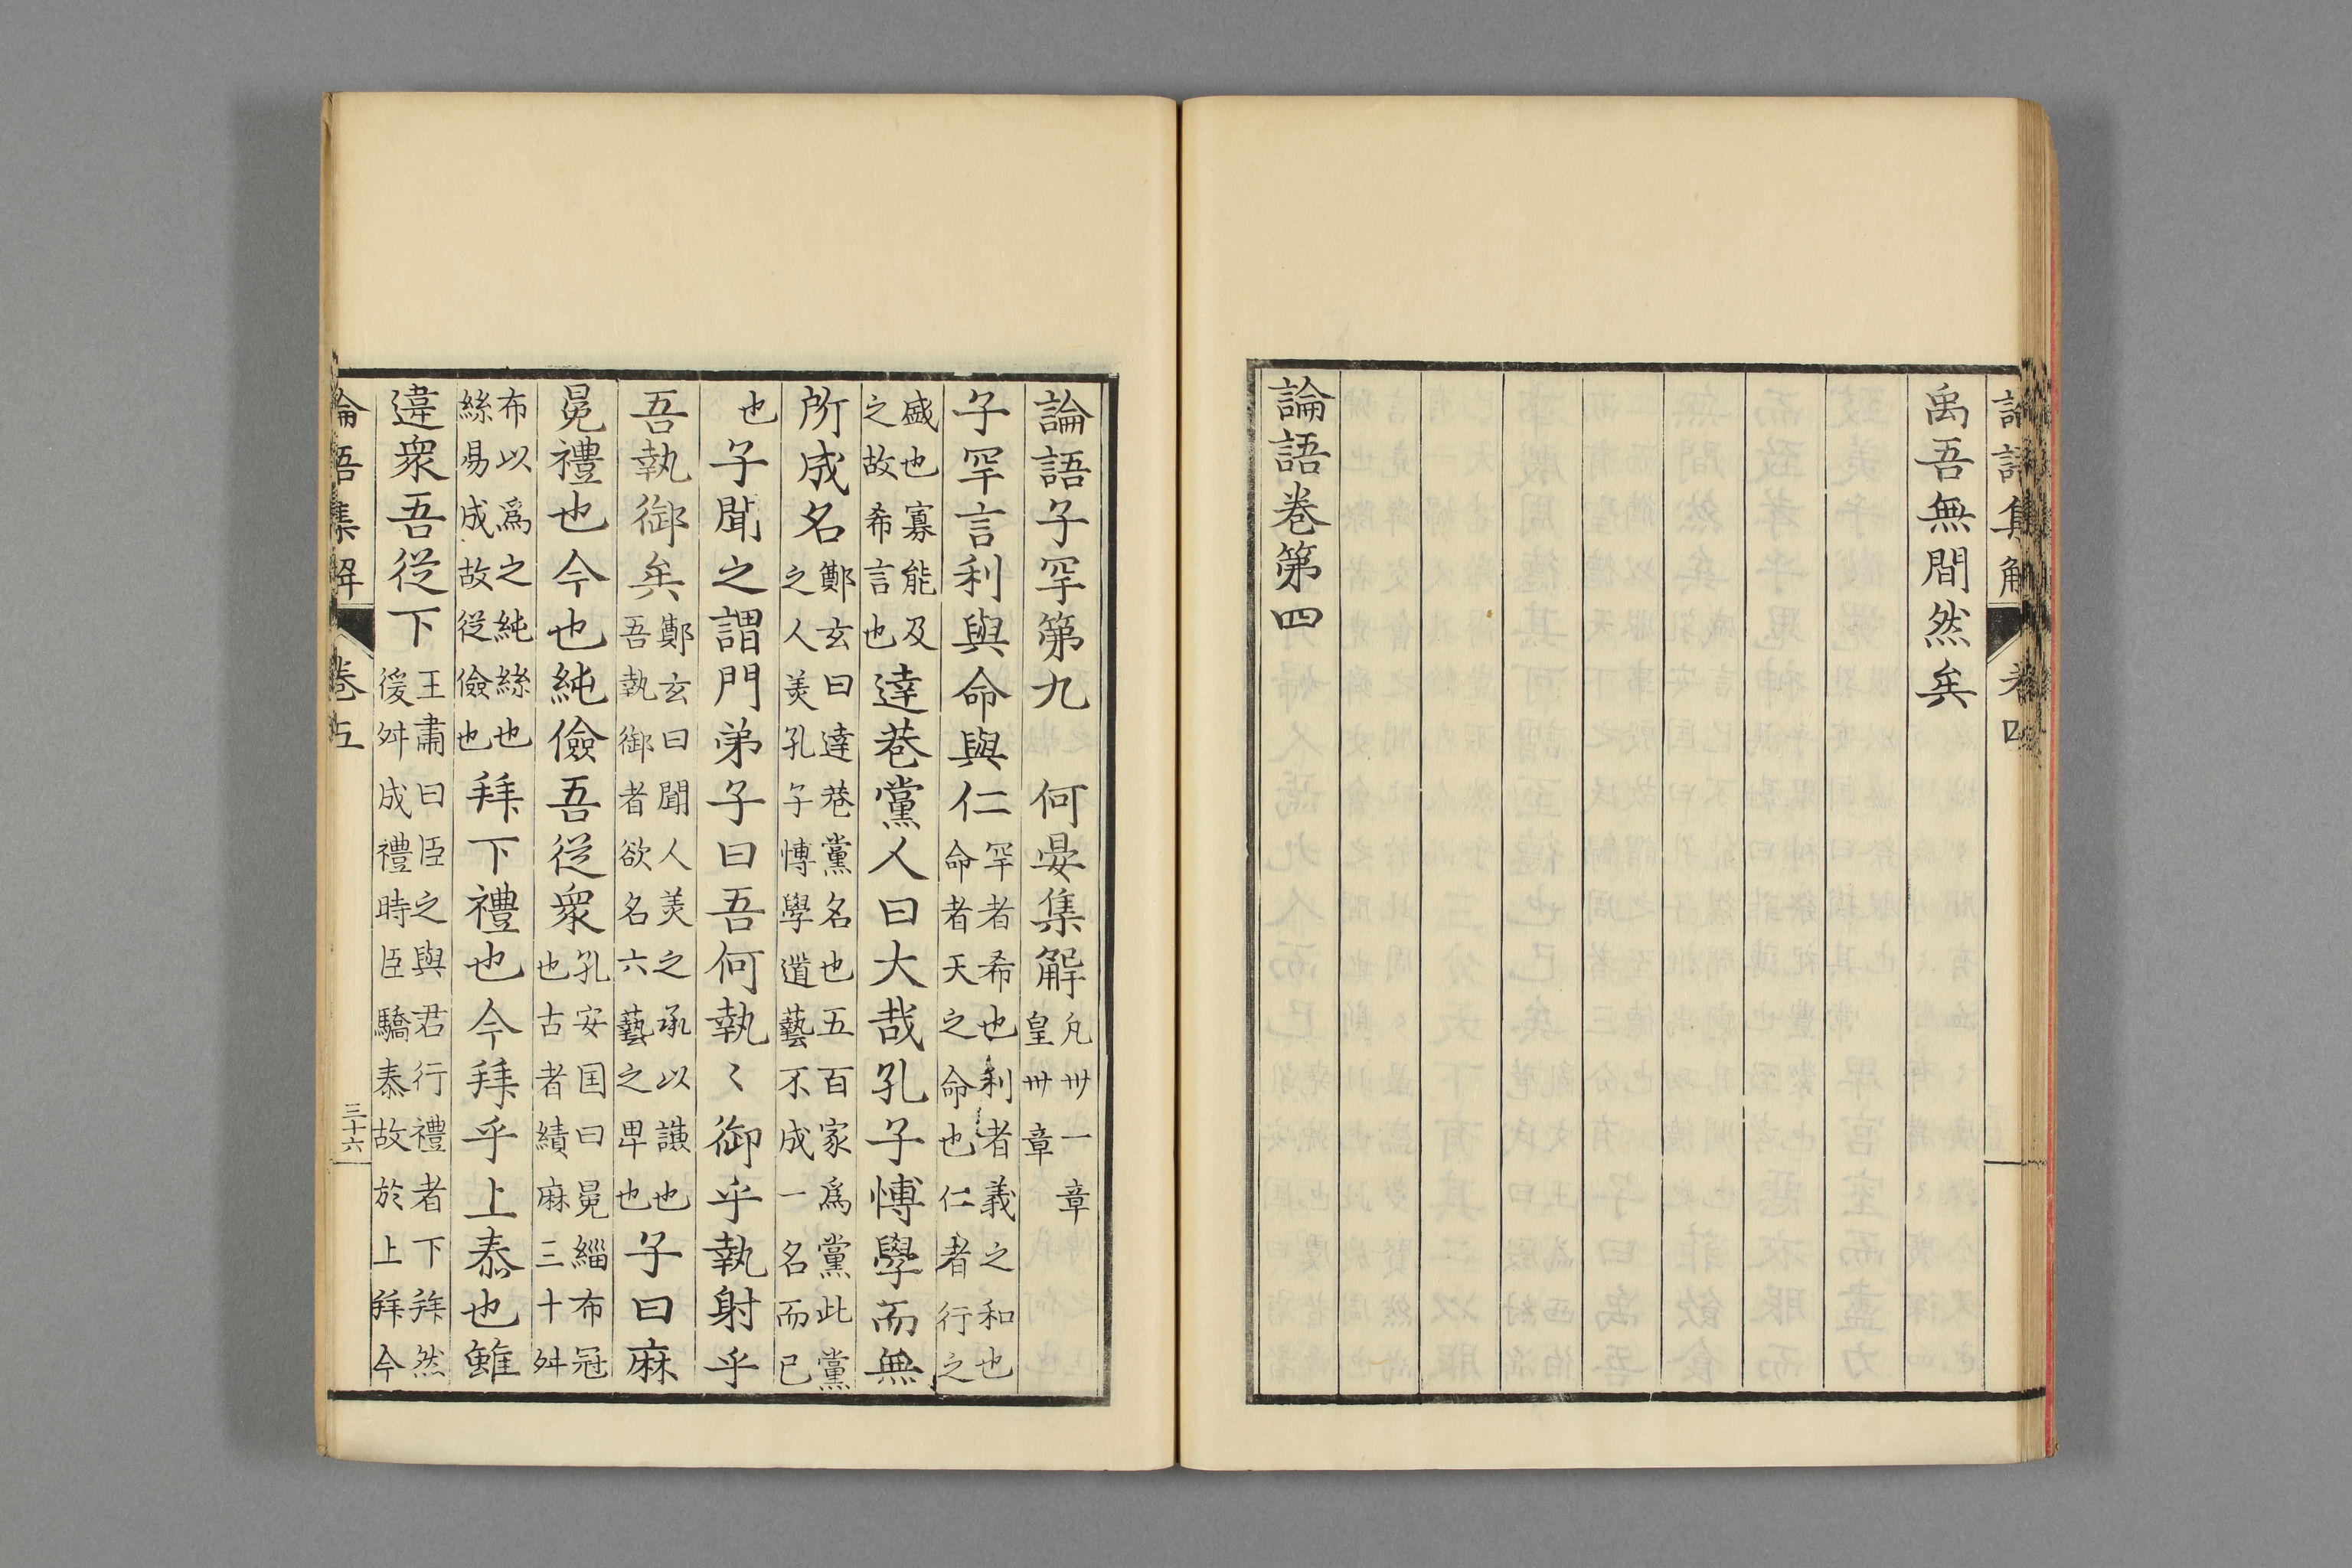 論語集解 卷四
禹吾無間然矣
論語卷第四
論語子罕第九 何晏集解 凡卅一章 皇卅章
子罕言利與命與仁 罕者希也利者義之和也 命者天之命也仁者行之
盛也寡能及 之故希言也 達巷黨人曰大哉孔子博學而無
所成名 鄭玄曰達巷黨名也五百家爲黨此黨 之人美孔子博學道藝不成一名而已
也 子聞之謂門弟子曰吾何執〻御乎執射乎
吾執御矣 鄭玄曰聞人美之承以謙也 吾執御者欲名六藝之卑也 子曰麻
冕禮也今也純儉吾從衆 孔安国曰冕緇布冠 也古者績麻三十舛
布以爲之純絲也 絲易成故從儉也 拜下禮也今拜乎上泰也雖
違衆吾從下 王肅曰臣之與君行禮者下拜然 後舛成禮時臣驕泰故於上拜今
論語集解 卷五 三十六